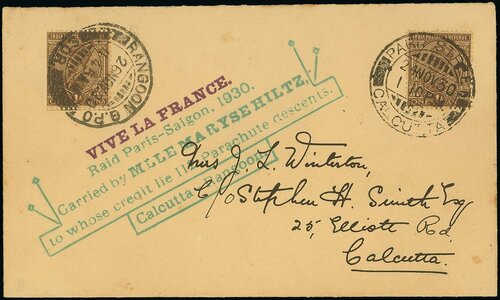 INDIA POSTAGE & REVENUE
RANGOON G.P.O.
26 NOV
PARK ST
NOV 30
CALCUTTA
VIVE LA FRANCE.
Raid Paris-Saigon, 1930.
Carried by MLLE MARYSE HILTZ,
to whose credit lie 112 parachute descents.
Calcutta-Rangoon
Mrs J. L. Winterton,
C/o Stephen H. Smith Esq
25, Elliott Rd,
Calcutta.